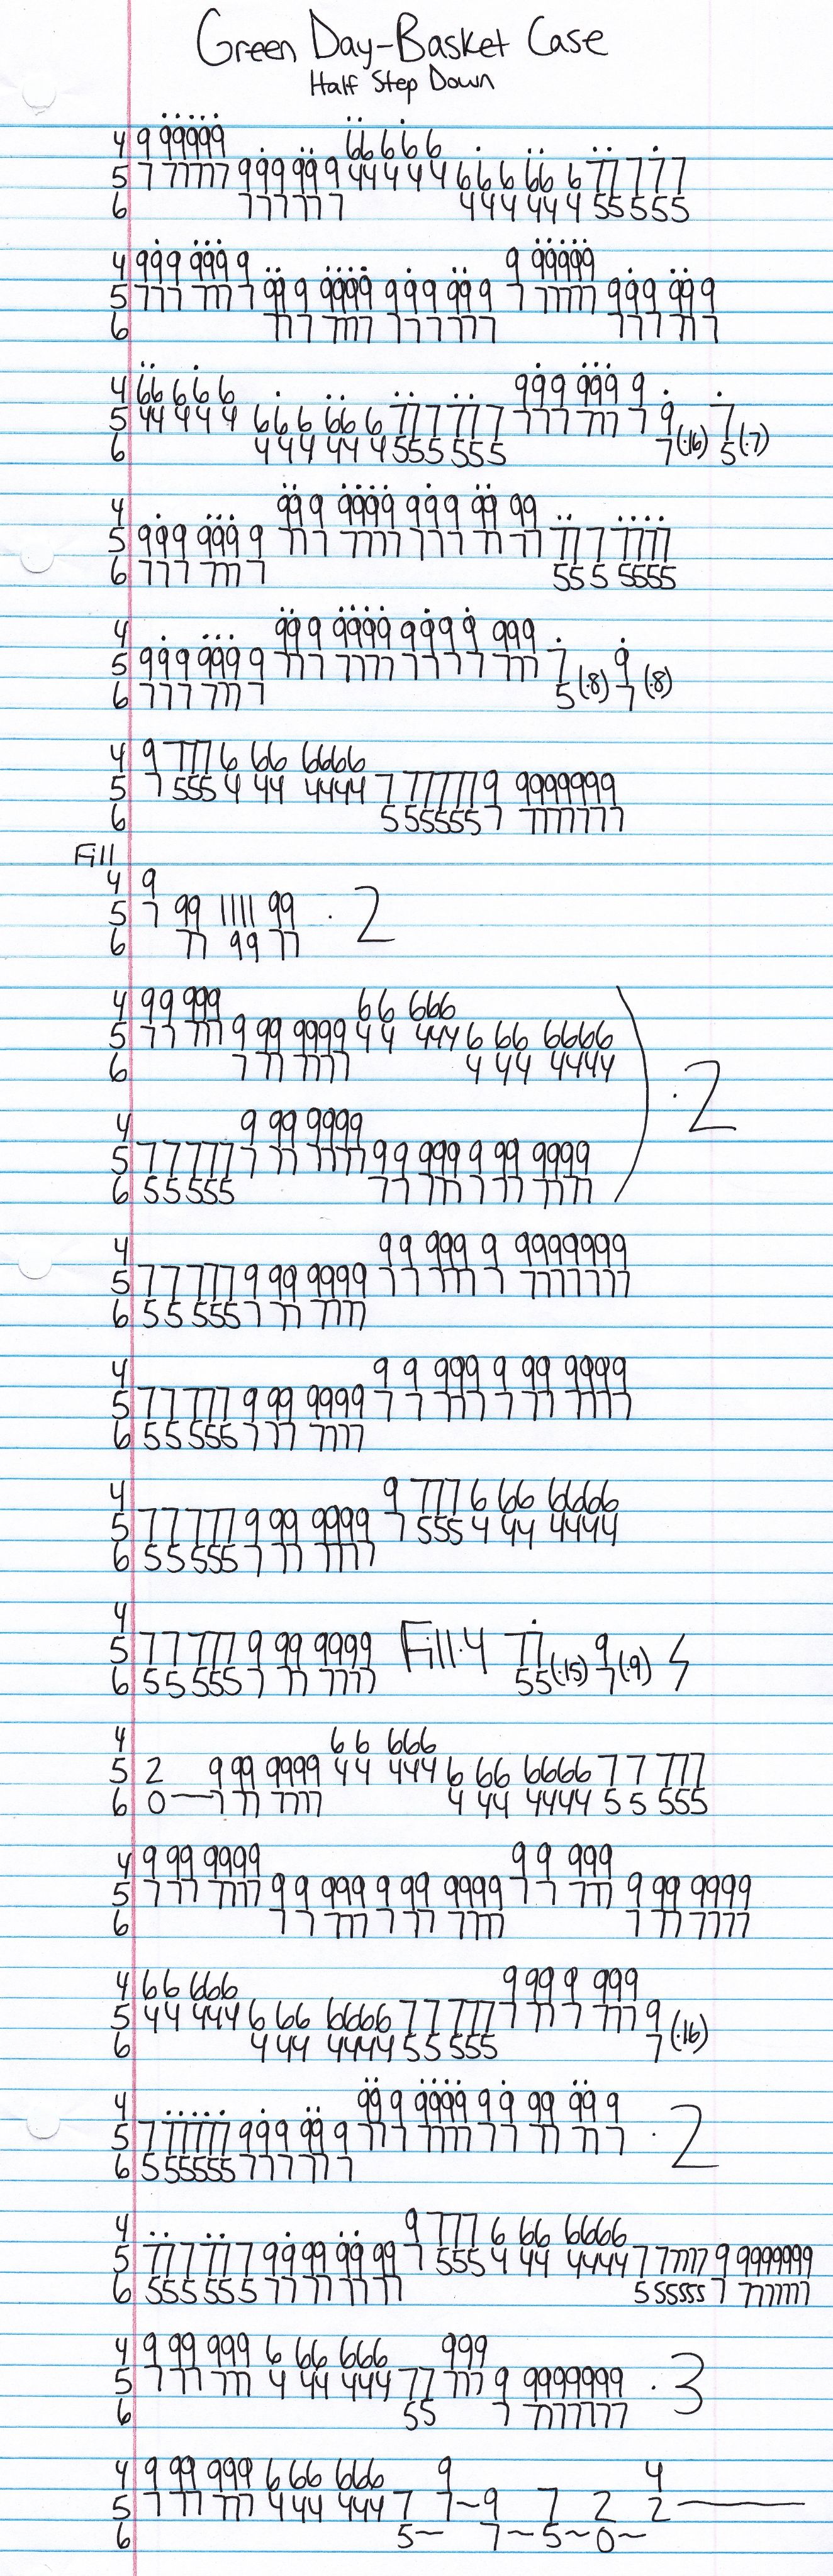 Green Day-Basket Case
Half Step Down
4 9 99999 66 6 6 6
5 7 77777 9 9 9 99 9 44 4 4 4 6 6 6 66 6 77 7 7 7
6 7 7 7 77 7 4 4 4 44 4 55 5 5 5
4 9 9 9 999 9 9 99999
5 7 7 7 777 7 99 9 9999 9 9 9 99 9 7 77777 9 9 9 99 9
6 77 7 7777 7 7 7 77 7 7 7 7 77 7
4 66 6 6 6 9 9 9 999 9
5 44 4 4 4 6 6 6 66 6 77 7 77 7 7 7 7 777 7 9 7
6 4 4 4 44 4 55 5 55 5 7(·16) 5(·7)
4 99 9 9999 9 9 9 99 99
5 9 9 9 999 9 77 7 7777 7 7 7 77 77 77 7 7777
6 7 7 7 777 7 55 5 5555
4 99 9 9999 9 9 9 9 999
5 9 9 9 999 9 77 7 7777 7 7 7 7 777 7 9
6 7 7 7 777 7 5(·8) 7(·8)
4 9 777 6 66 6666
5 7 555 4 44 4444 7 77777 9 9999999
6 5 55555 7 7777777
Fill
4 9
5 7 99 1111 99 · 2
6 77 99 77
4 99 999 66 666
5 77 777 9 99 9999 44 444 6 66 6666
6 7 77 7777 4 44 4444
· 2
4 9 99 9999
5 77 777 7 77 7777 99 999 9 99 9999
6 55 555 77 777 7 77 7777
4 99 999 9 9999999
5 77 777 9 99 9999 77 777 7 7777777
6 55 555 7 77 7777
4 9 9 999 9 99 9999
5 77 777 9 99 9999 7 7 777 7 77 7777
6 55 555 7 77 7777
4 9 777 6 66 6666
5 77 777 9 99 9999 7 555 4 44 4444
6 55 555 7 77 7777
4
5 77 777 9 99 9999 Fill·4 77 9
6 55 555 7 77 7777 55(·15) 7(·9)
4 66 666
5 2 9 99 9999 44 444 6 66 6666 77 777
6 0—7 77 7777 4 44 4444 55 555
4 9 99 9999 99 999
5 7 77 7777 99 999 9 99 9999 77 777 9 99 9999
6 77 777 7 77 7777 7 77 7777
4 66 666 9 99 9 999
5 44 444 6 66 6666 77 777 7 77 7 777 9
6 4 44 4444 55 555 7(·16)
4 99 9 9999 9 9 99 99 9
5 7 77777 9 9 9 99 9 77 7 7777 7 7 77 77 7 · 2
6 5 55555 7 7 7 77 7
4 9 777 6 66 6666
5 77 7 77 7 9 9 99 99 99 7 555 4 44 4444 7 77777 9 9999999
6 55 5 55 5 7 7 77 77 77 5 55555 7 7777777
4 9 99 999 6 66 666 999
5 7 77 777 4 44 444 77 777 9 9999999 · 3
6 55 7 7777777
4 9 99 999 6 66 666 9 4
5 7 77 777 4 44 444 7 7~9 7 2 2———
6 5~ 7~5~0~